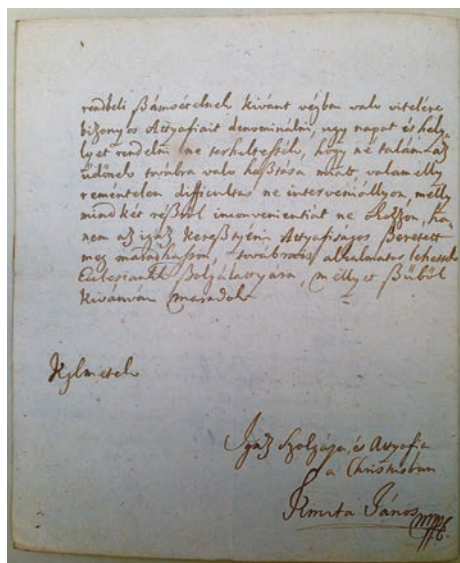 rendbeli ßámvételnek kivánt végben valo vitelére
bizonyos Attyafiait denominálni, ugy napot és hely-
lyet rendelni ne terheltessék, hogy né talám az
üdőnek tovabra valo haßtása miatt, valamelly
reméntelen difficultas ne interveniállyon, melly
mind két réßröl inconvenientiát ne okozzon, ha-
nem az igaz Kereßtyéni Attyafiságos ßeretet
meg maradhasson, továbra is alkalmatos lehessek
Ecclesiánk ßolgálattyára, mellyet ßübül
Kivánván maradok
Kglmetek
Igaz Szolgája, és Attyafia
a Christusban
Kmita János mpr